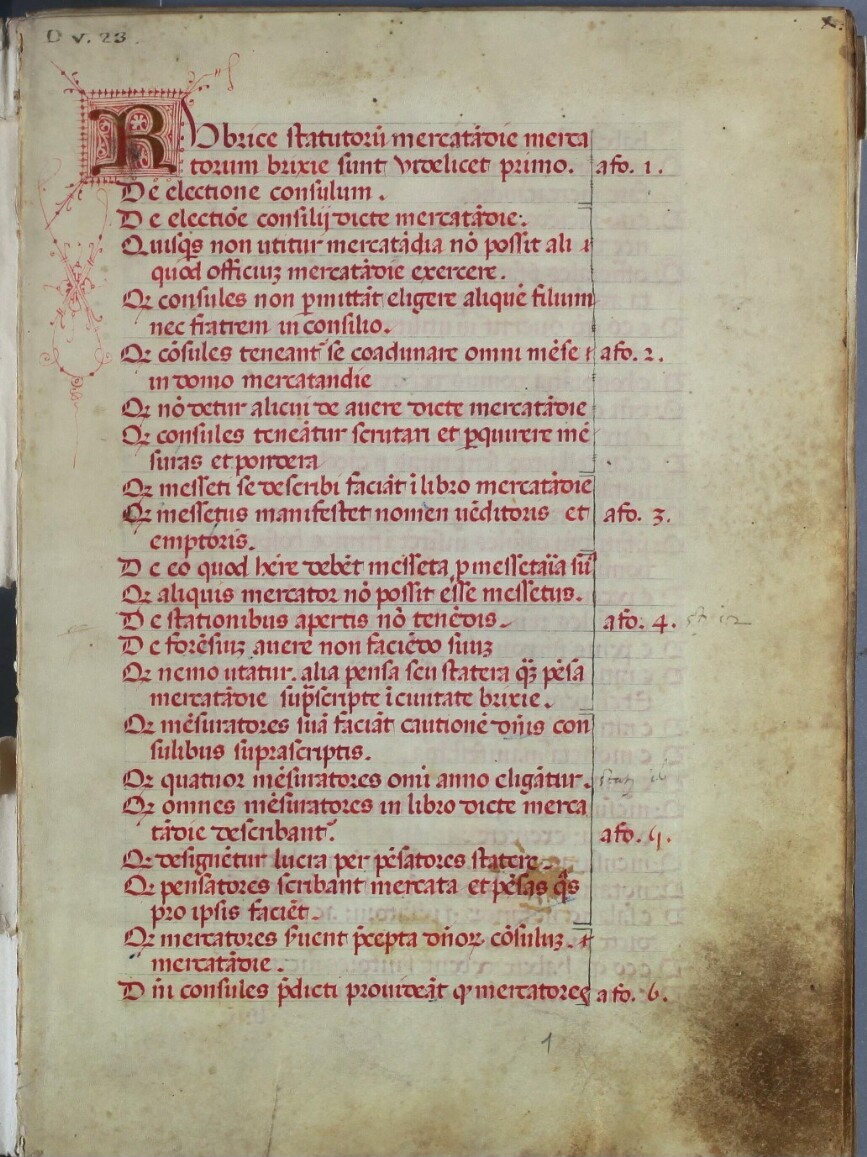 D v. 23. x.
Rubrice statutorū mercatādie merca
torum brixie sunt videlicet primo. afo. 1.
De electione consulum.
De electiōe consilij dicte mercatādie.
Quisqȝ non utitur mercatādia nō possit ali
quod officiuȝ mercatādie exercere.
Qȝ consules non ꝑmittāt eligere aliquē filium
nec fratrem in consilio.
Qȝ cōsules teneant se coadunare omni mēse afo. 2.
in domo mercatandie
Qȝ nō detur alicui de auere dicte mercatādie
Qȝ consules teneātur scrutari et ꝑquirere mē
suras et pondera
Qȝ messeti se describi faciāt ī libro mercatādie
Qȝ messetus manifestet nomen uēditoris et afo. 3.
emptoris.
De eo quod hēre debēt messeta ꝑ messetaīa
Qȝ aliquis mercator nō possit esse messetus.
De stationibus apertis nō tenēdis. afo. 4.
De forēsiuȝ auere non faciēdo suuȝ
Qȝ nemo utatur. alia pensa seu statera qȝ pēsa
mercatādie sup̄scripte ī ciuitate brixie.
Qȝ mēsuratores suā faciāt cautionē dn̄is con
sulibus suprascriptis.
Qȝ quatuor mēsuratores omī anno eligātur.
Qȝ omnes mēsuratores in libro dicte merca
tādie describant. afo. 5.
Qȝ designētur lucra per pēsatores statere.
Qȝ pensatores scribant mercata et pēsas q̄s
pro ipsis faciēt.
Qȝ mercatores ꝓcepta dn̄oꝝ cōsuluȝ.
mercatādie.
Dn̄i consules p̄dicti prouideāt qȝ mercatores afo. 6.
1